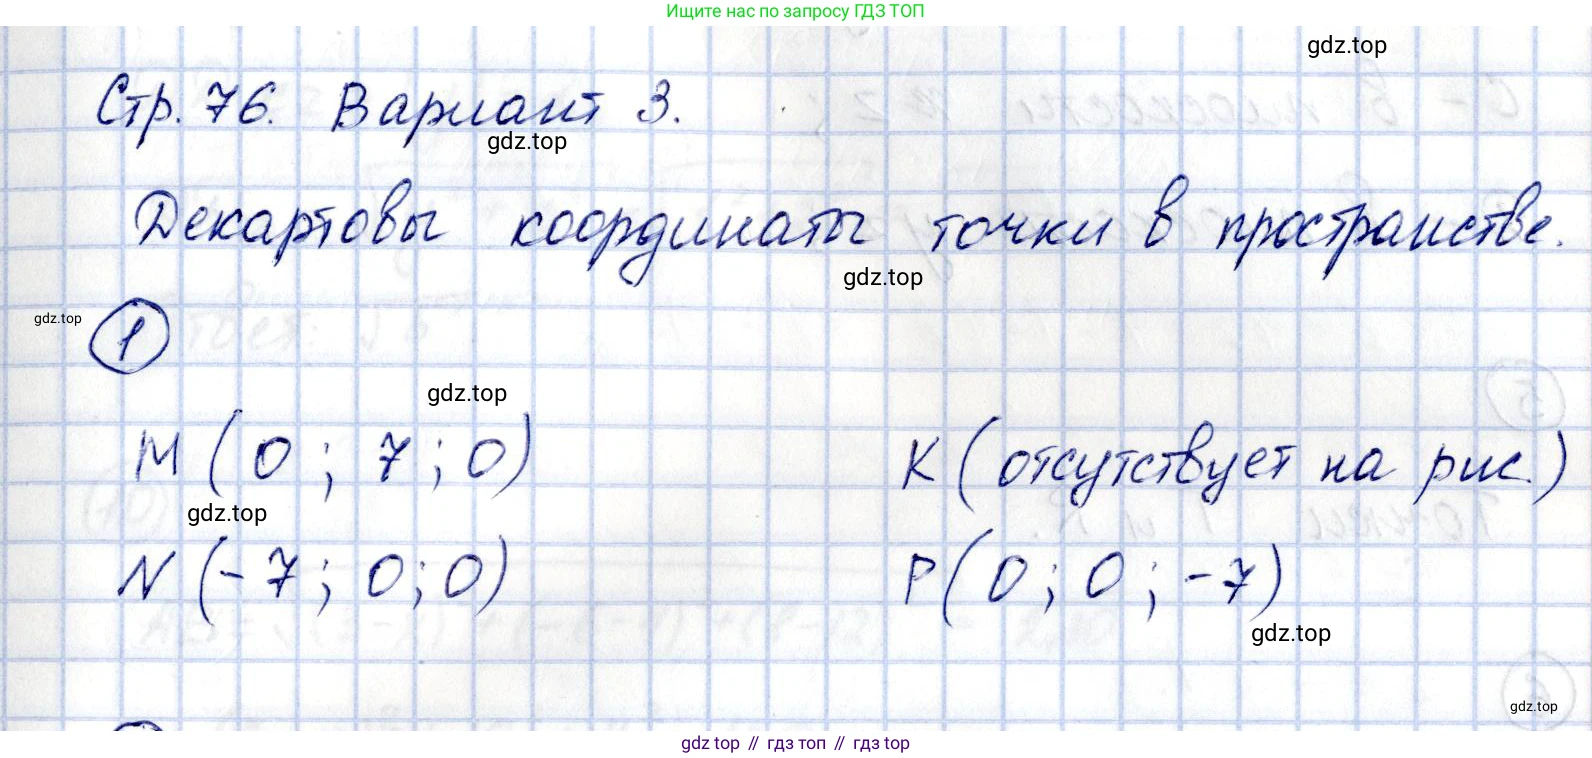 Ищите нас по запросу ГДЗ ТОП
gdz.top
Стр. 76. Вариант 3.
gdz.top
Декартовы координаты точки в пространстве.
gdz.top
gdz.top
1
gdz.top
M (0 ; 7 ; 0) K (отсутствует на рис.)
gdz.top
N (-7 ; 0 ; 0) P (0 ; 0 ; -7)
gdz.top
gdz.top
gdz top // гдз топ // gdz top